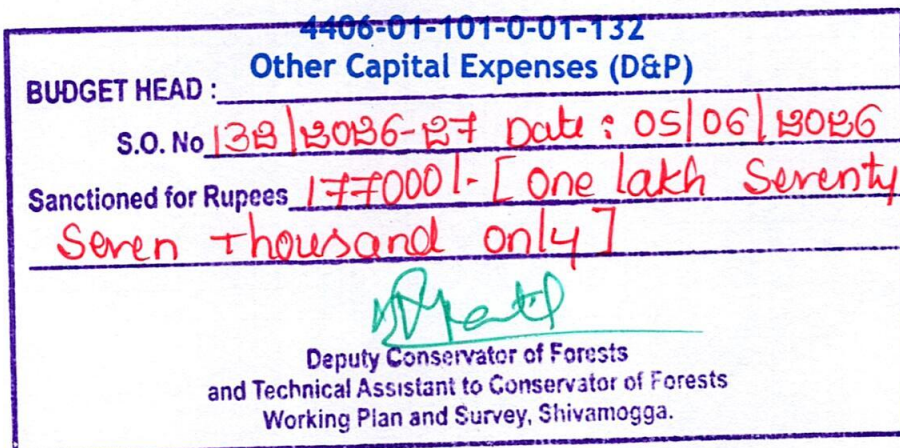 4406-01-101-0-01-132
Other Capital Expenses (D&P)
BUDGET HEAD :
S.O. No 132/2026-27 Date : 05/06/2026
Sanctioned for Rupees 177000/- [One lakh Seventy
Seven Thousand only]
Deputy Conservator of Forests
and Technical Assistant to Conservator of Forests
Working Plan and Survey, Shivamogga.